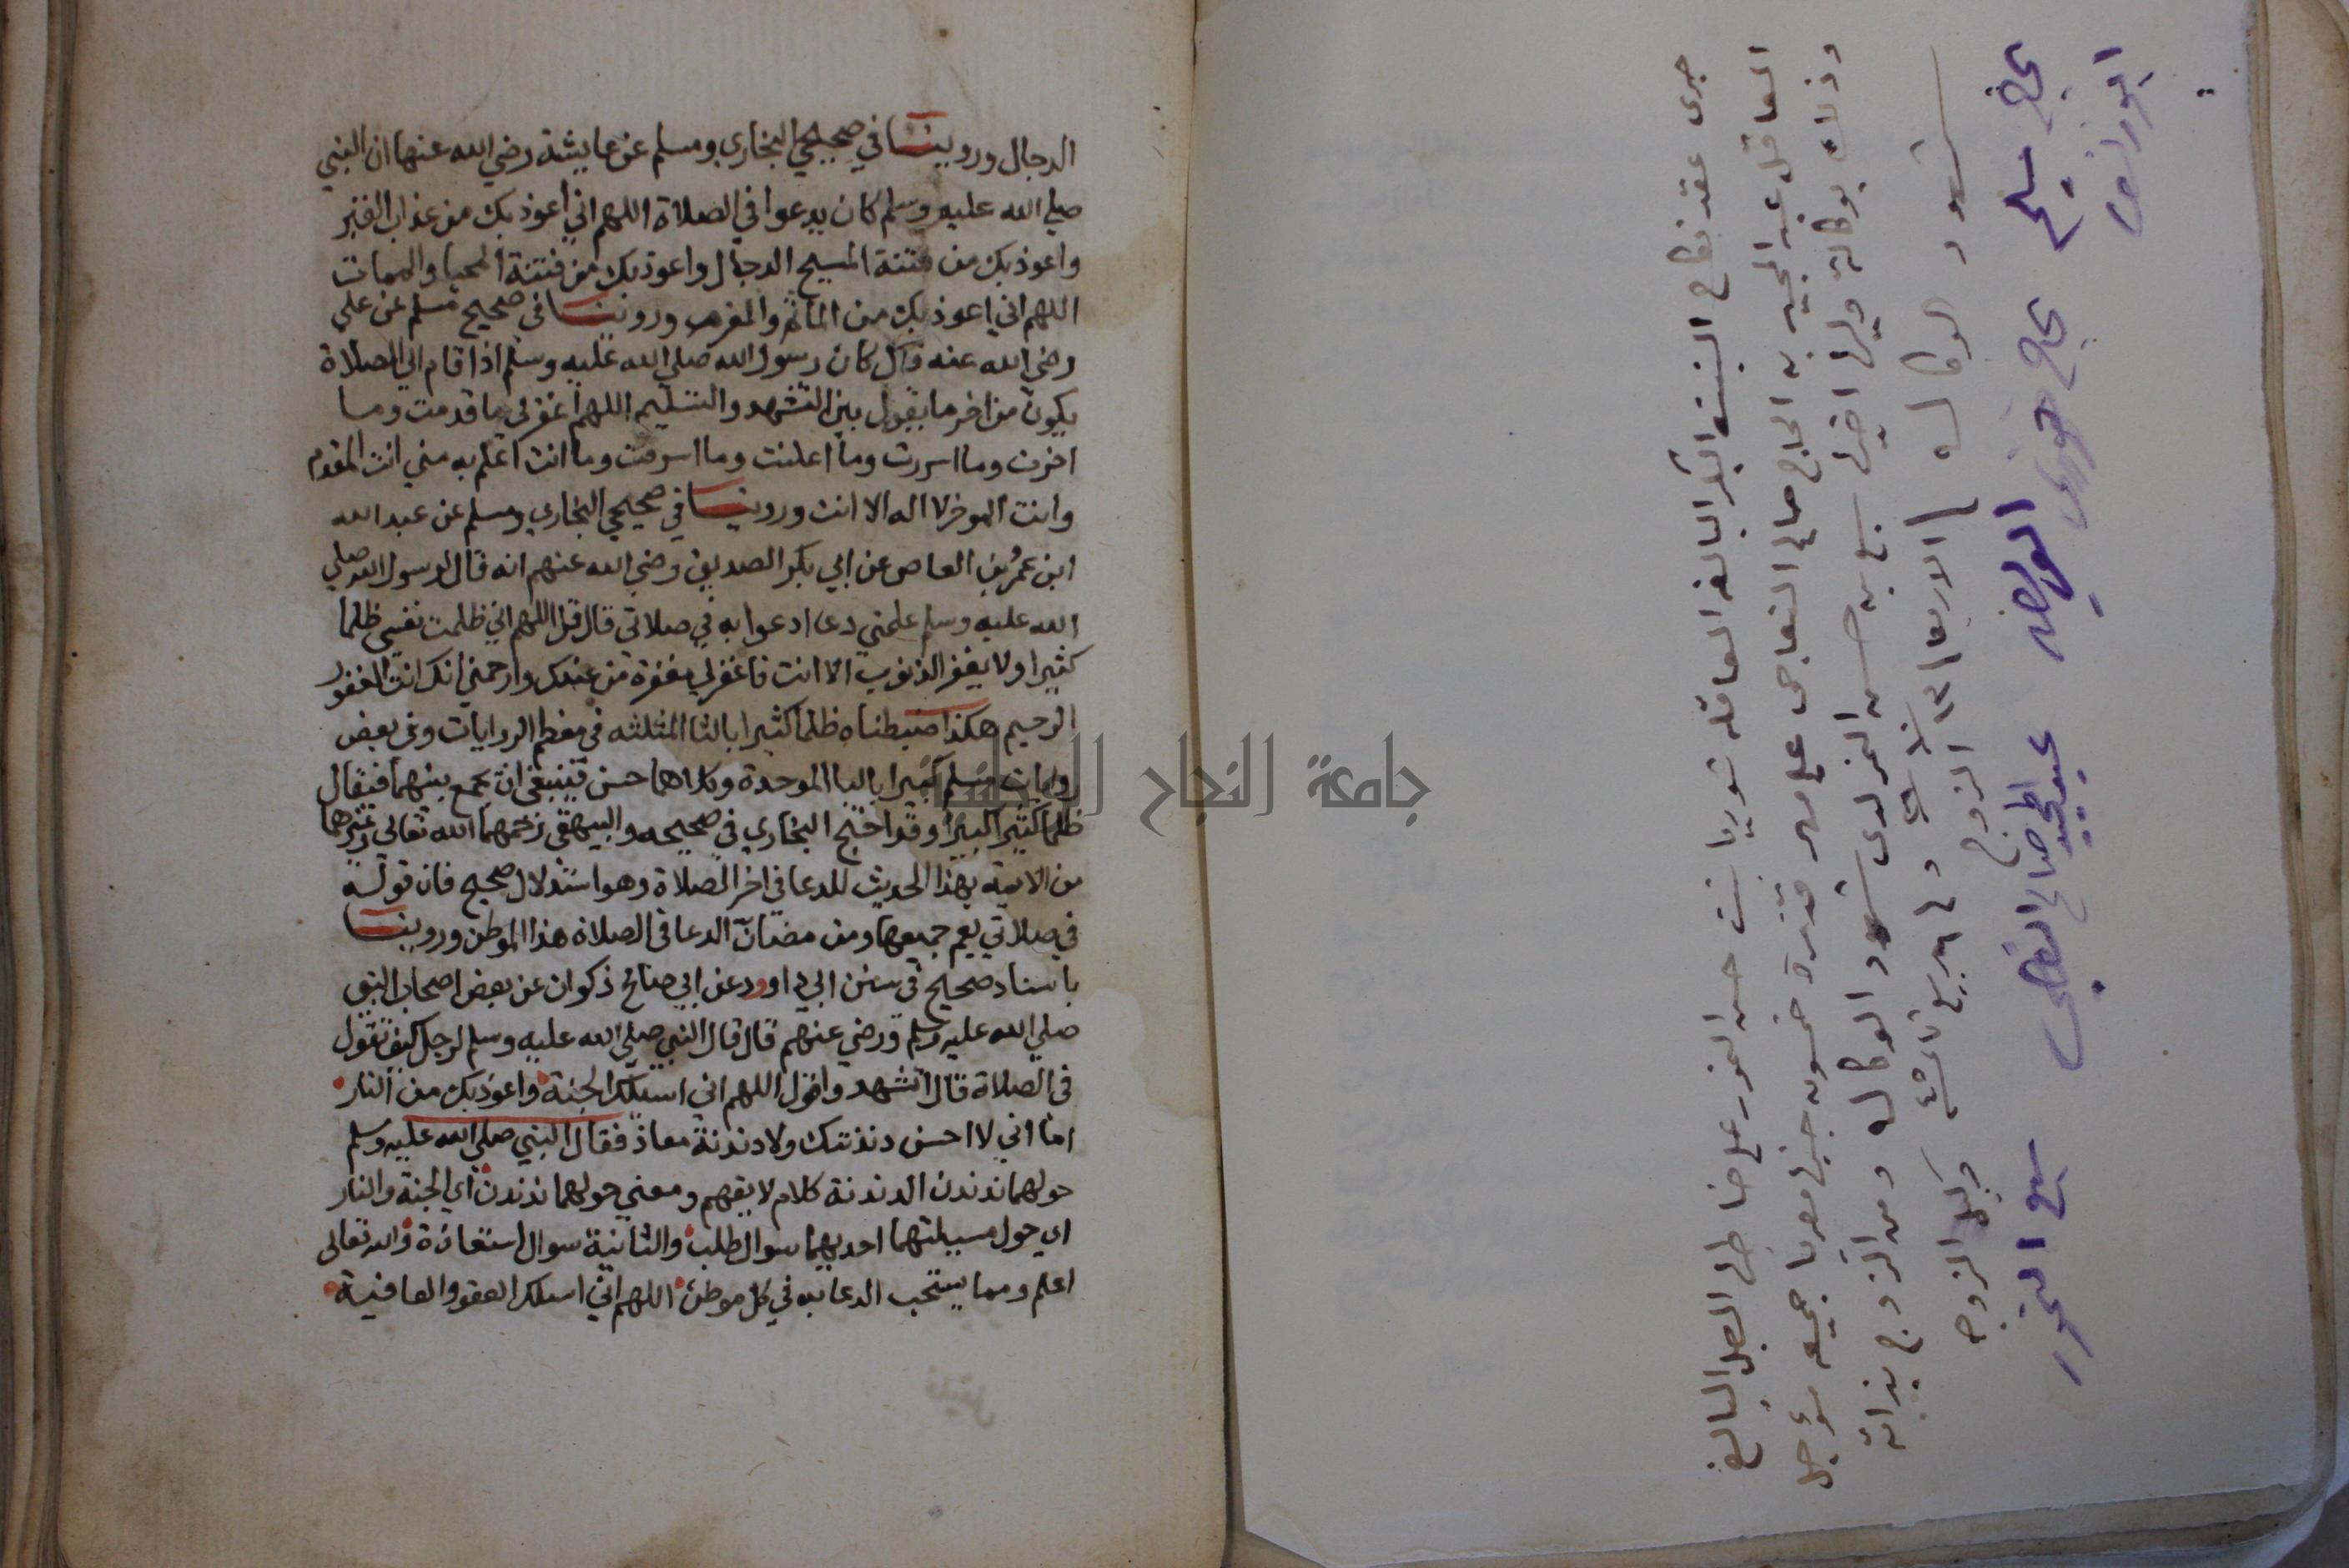 الدجال وروينا في صحيحي البخاري ومسلم عن عايشة رضي الله عنها ان النبي
صلي الله عليه وسلم كان يدعوا في الصلاة اللهم اني اعوذ بك من عذاب القبر
واعوذ بك من فتنة المسيح الدجال واعوذ بك من فتنة المحيا والممات
اللهم اني اعوذ بك من الماثم والمغرم وروينا في صحيح مسلم عن علي
رضي الله عنه قال كان رسول الله صلي الله عليه وسلم اذا قام الي الصلاة
يكون من اخر ما يقول بين التشهد والتسليم اللهم اغفر لي ما قدمت وما
اخرت وما اسررت وما اعلنت وما اسرفت وما انت اعلم به مني انت المقدم
وانت الموخر لا اله الا انت وروينا في صحيحي البخاري ومسلم عن عبد الله
ابن عمرو بن العاص عن ابي بكر الصديق رضي الله عنهم انه قال لرسول الله صلي
الله عليه وسلم علمني دعا ادعوا به في صلاتي قال قل اللهم اني ظلمت نفسي ظلما
كثيرا ولا يغفر الذنوب الا انت فاغفر لي مغفرة من عندك وارحمني انك انت الغفور
الرحيم هكذا ضبطناه ظلما كثيرا بالثا المثلثه في معظم الروايات وفي بعض
روايات مسلم كبيرا بالبا الموحدة وكلاهما حسن فينبغي ان يجمع بينهما فيقال
ظلما كثيرا كبيرا وقد احتج البخاري في صحيحه والبيهقي رحمهما الله تعالى وغيرهما
من الايمه بهذا الحديث للدعا في اخر الصلاة وهو استدلال صحيح فان قوله
في صلاتي يعم جميعها ومن مضان الدعا في الصلاة هذا الموطن وروينا
باسناد صحيح في سنن ابي داوود عن ابي صالح ذكوان عن بعض اصحاب النبي
صلي الله عليه وسلم ورضي عنهم قال قال النبي صلي الله عليه وسلم لرجل كيف تقول
في الصلاة قال اتشهد واقول اللهم اني اسئلك الجنة واعوذ بك من النار
اما اني لا احسن دندنتك ولا دندنة معاذ فقال النبي صلي الله عليه وسلم
حولهما ندندن الدندنة كلام لا يفهم ومعني حولهما ندندن اي الجنة والنار
اي حول مسيلتهما احديهما سوال طلب والثانية سوال استعاذة والله تعالى
اعلم ومما يستحب الدعا به في كل موطن اللهم اني اسئلك العفو والعافية
جرى عقد نكاح البنت البكر البالغه العاقله ثوريا بنت حسن النمر على خاطبها الرجل البالغ
العاقل عبد المجيد بن الحاج صالح النعاجى على مهر قدره خمسون جنيها مصريا جميعه مؤجل
وذلك بوكالة وليها اخيها سبع بن حسن النمر لدى شهود الوكاله ومن الزوج بذاته
شهود الوكاله الاربعاء وكيل الزوجه
الزوج
جامعة النجاح الوطنية